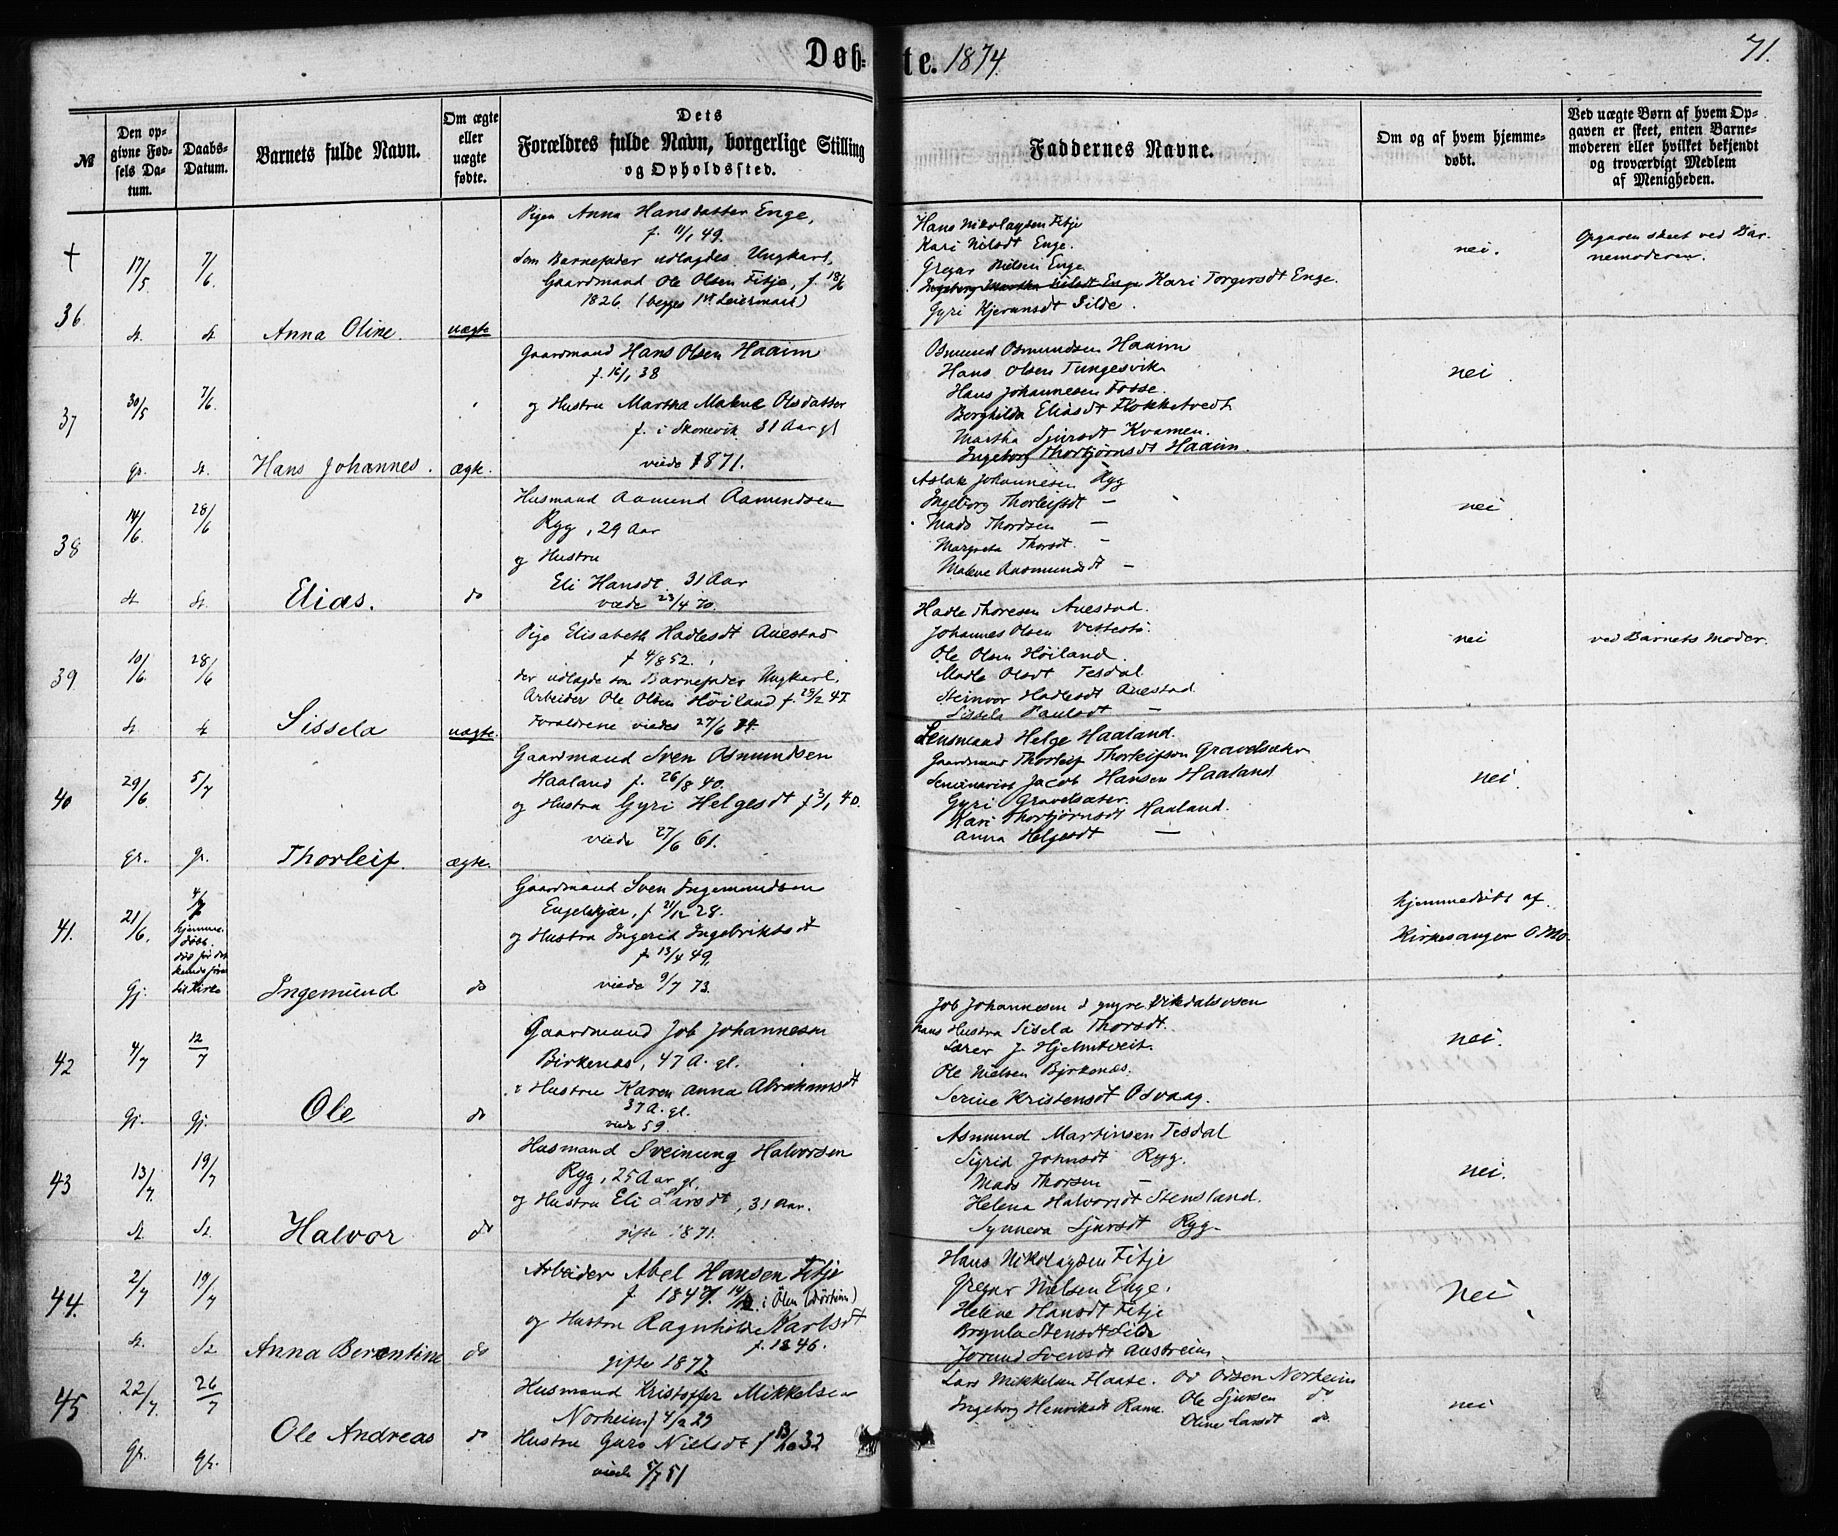 Døbte. 1874.
71.
№
Den opgivne Fødsels Datum.
Daabs-Datum.
Barnets fulde Navn.
Om ægte eller uægte fødte.
Dets Forældres fulde Navn, borgerlige Stilling og Opholdssted.
Faddernes Navne.
Om og af hvem hjemmedøbt.
Ved uægte Børn af hvem Opgaven er skeet, enten Barnemoderen eller hvilket bekjendt og troværdigt Medlem af Menigheden.
+
36.
17/5
7/6
Anna Oline.
uægte
Pigen Anna Hansdatter Enge,
f. 11/1 49.
Som Barnefader udlagdes Ungkarl,
Gaardmand Ole Olsen Fitje, f. 18/6
1826. (begges 1st Leiermaal)
Hans Nikolaysen Fitje
Kari Nilsdt Enge.
Gregar Nielsen Enge
Kari Torgersdt Enge.
Gyri Kjeransdt Silde.
nei.
Opgaven skeet ved Barnemoderen.
37
30/5
7/6
gr.
Hans Johannes.
ægte.
Gaardmand Hans Olsen Haaim
f. 16/1 38
og Hustru Martha Malene Olsdatter
f. i Skonevik 31 Aar gl
viede 1871.
Osmund Osmundsen Haaim
Hans Olsen Tungesvik
Hans Johannesen Fosse.
Borghilda Eliasdt Flokketvedt
Martha Sjursdt Kvamen.
Ingeborg Thorbjørnsdt Haaim.
nei
38
14/6
28/6
Elias.
do
Husmand Aamund Aamundsen
Ryg, 29 Aar
og Hustru
Eli Hansdt. 31 Aar
viede 23/4 70.
Aslak Johannesen Ryg
Ingeborg Thorleifsdt —
Mads Thordsen —
Margreta Thorsdt. —
Malene Aasmundsdt —
nei
39
10/6
28/6
Sissela
uægte.
Pige Elisabeth Hadlesdt Auestad
f 4/8 52.
der udlagde som Barnefader Ungkarl,
Arbeider Ole Olsen Høiland f. 23/2 47.
Forældrene viedes 27/6 74.
Hadle Thoresen Auestad.
Johannes Olsen Vettestø.
Ole Olsen Høiland.
Madla Olsdt Tesdal
Steinvor Hadlesdt Auestad
Sissela Paulsdt —
nei
ved Barnets Moder.
40
29/6
5/7
gr.
gr.
Thorleif.
ægte.
Gaardmand Sven Osmundsen
Haaland f. 26/8 40.
og Hustru Gyri Helgesdt f 3/1 40.
viede 27/6 61.
Lensmand Helge Haaland.
Gaardmand Thorleif Thorleifson Gravelsæter
Seminarist Jacob Hansen Haaland
Gyri Gravelsæter.
Kari Thorbjørnsdt Haaland.
Anna Helgesdt —
nei.
41.
21/6.
4/7
hjemmedøbt.
død før det
kunde føres
til Kirke
Gj.
Ingemund
do
Gaardmand Sven Ingemundsen
Engelskjær, f 21/12 28.
og Hustru Ingerid Ingebriktsdt
f 13/4 49.
viede 9/7 73.
hjemmedøbt af
Kirkesanger O. Mo.
42
4/7
12/7
gj.
gj.
Ole
do
Gaardmand Job Johannesen
Birkenæs, 47 A. gl.
Hustru Karen Anna Abrahamsdt
37 A. gl.
viede 59.
Job Johannesen Vikedalsosen
hans Hustru Sisela Thorsdt.
Lærer J. Hjelmtveit.
Ole Nielsen Bjrkenæs.
Serine Kristensdt Osvaag.
nei.
43
13/7
19/7
St.
Halvor
do
Husmand Sveinung Halvorsen
Ryg, 25 Aar gl.
og Hustru Eli Larsdt, 31 Aar.
gifte 1871.
Asmund Martinsen Tesdal
Sigrid Johnsdt Ryg.
Mads Thorsen —
Helena Halvorsdt Stensland.
Synneva Sjursdt Ryg.
nei.
44.
2/7
19/7
St
Anna Berentine
do
Arbeider Abel Hansen Fitje
f. 1847. i Ølen
og Hustru Ragnhilde Karlsdt
f. 1846.
gifte 1872
Hans Nikolaysen Fitje
Gregar Nielsen Enge.
Helene Hansdt Fitje
Brynla Stensdt Silde
Jorund Svensdt Austreim.
Nei
45
22/7.
26/7
gr.
gr.
Ole Andreas
do
Husmand Kristoffer Mikkelsen
Norheim f 4/2 29
Hustru Guro Nielsdt f 13/10 32
viede 5/7 51
Lars Mikkelsen Haase. Od Odsen Norheim
Ole Sjursen do
Ingeborg Henriksdt Rame. Oline Larsdt do
nei